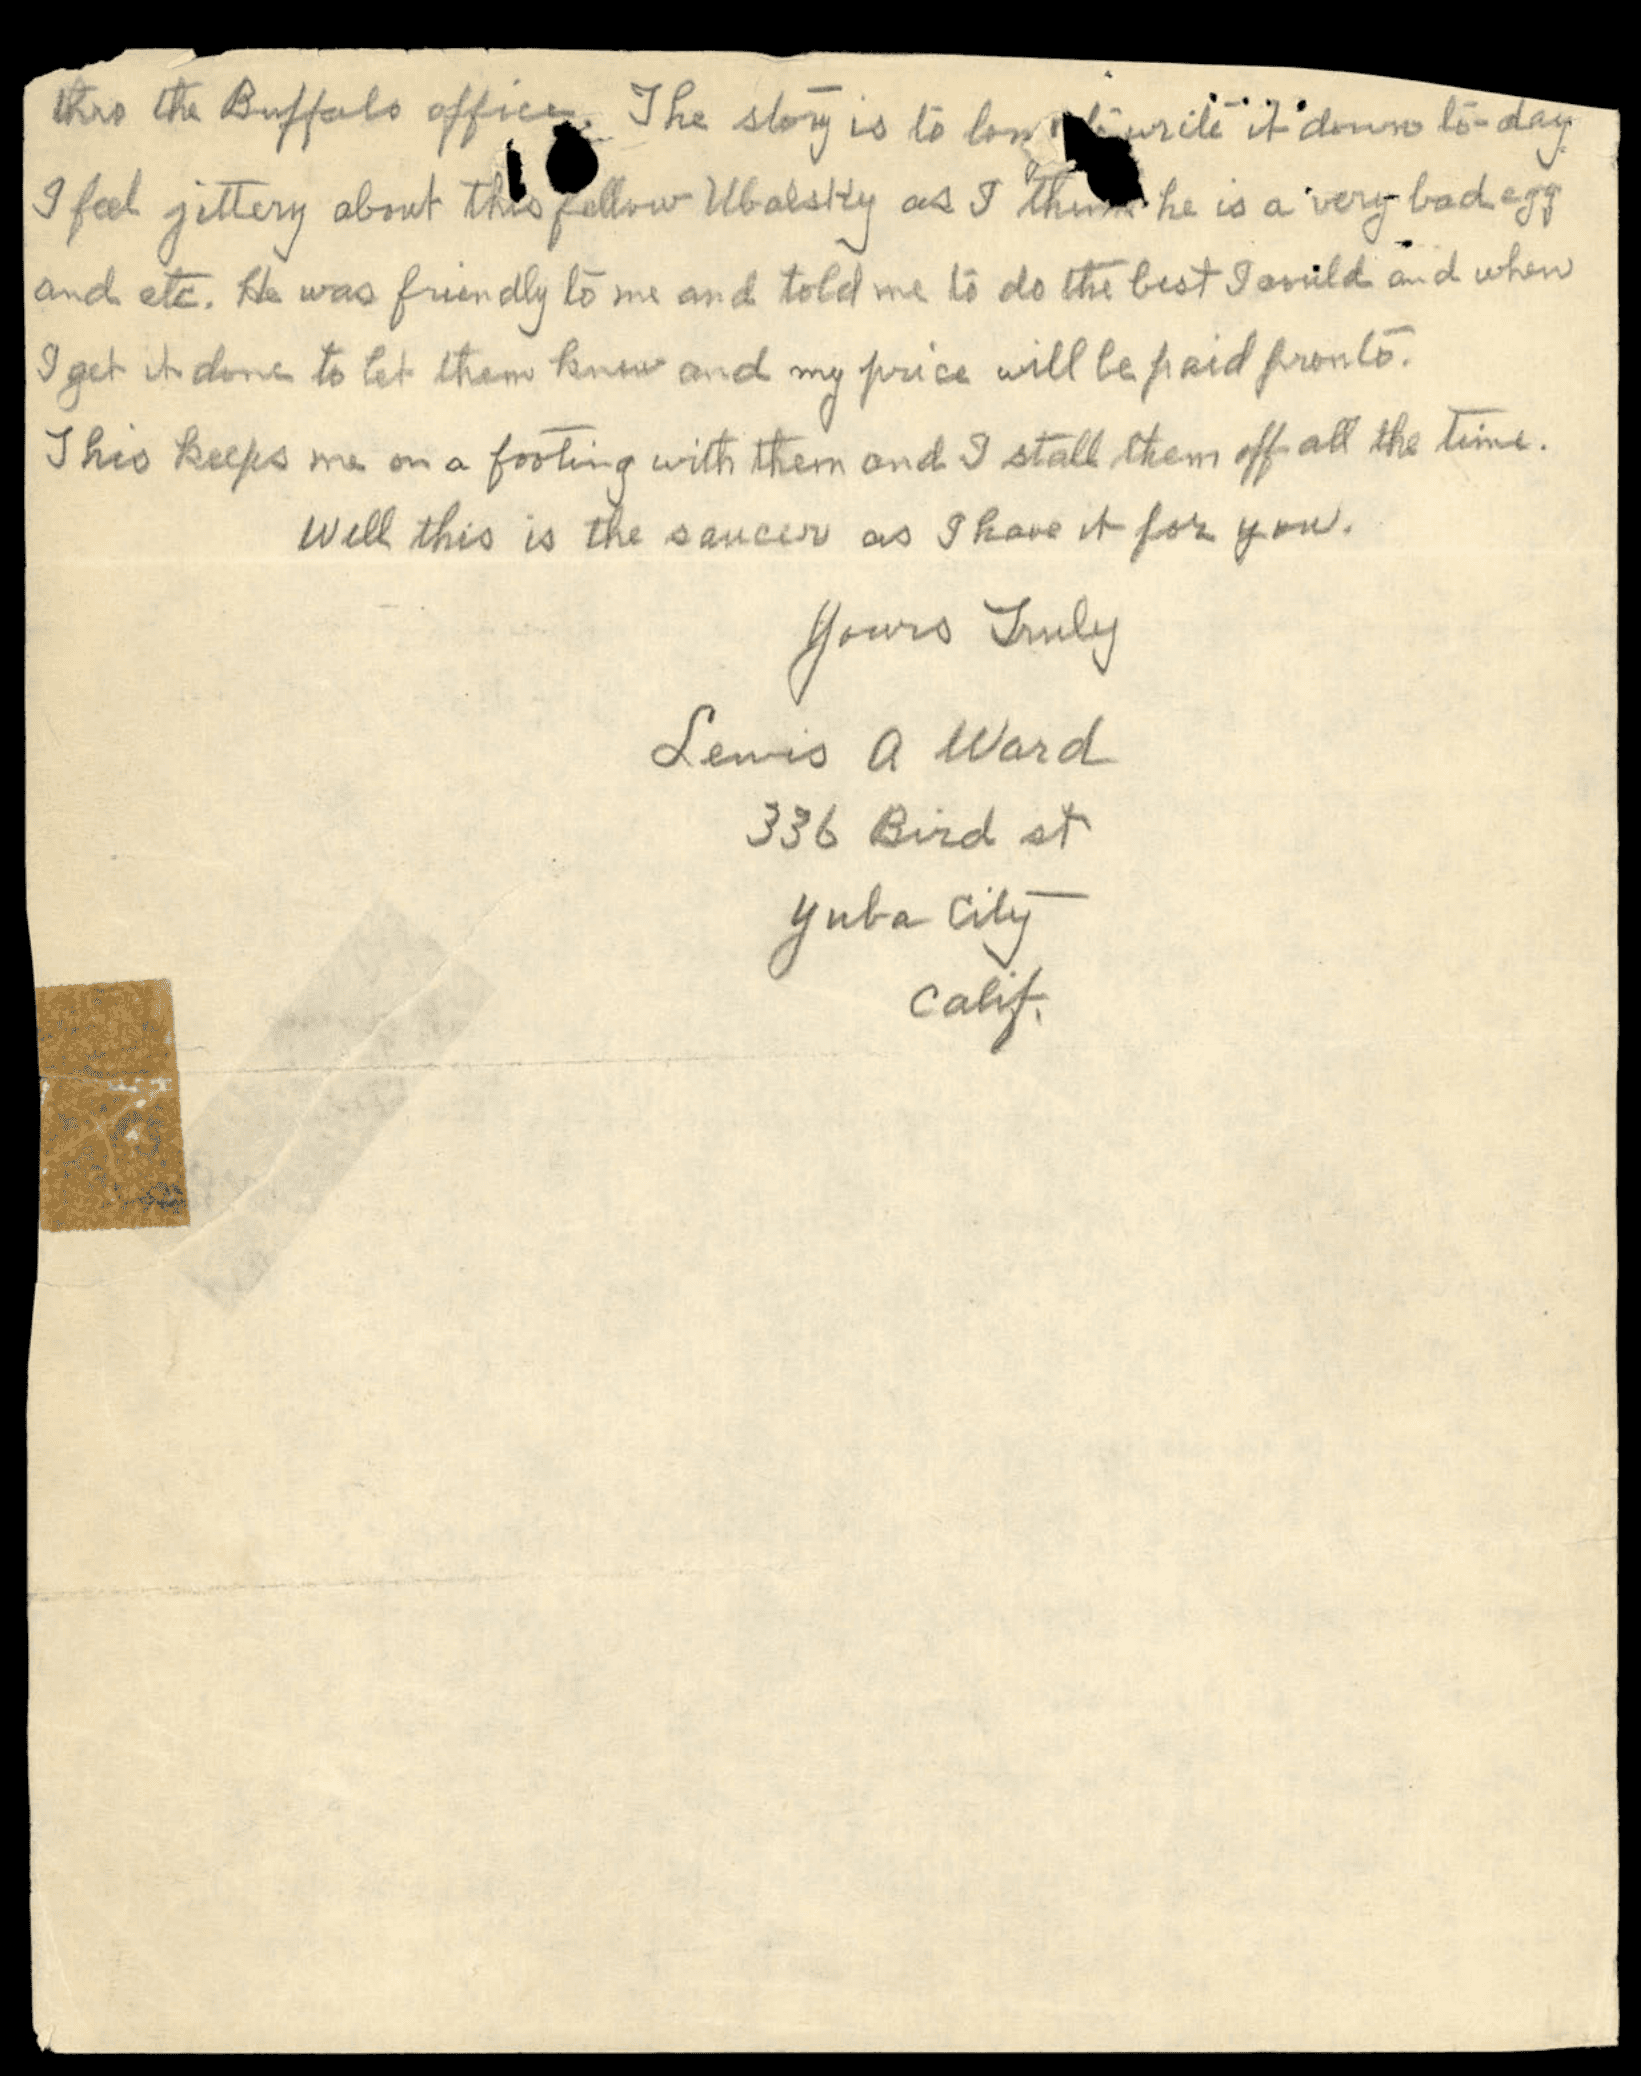 thro the Buffalo office. The story is to long to write it down to-day
I feel jittery about this fellow Ubalsky as I think he is a very bad egg
and etc. He was friendly to me and told me to do the best I could and when
I get it done to let them know and my price will be paid pronto.
This keeps me on a footing with them and I stall them off all the time.
Well this is the saucer as I have it for you.
Yours Truly
Lewis A Ward
336 Bird st
Yuba City
Calif.